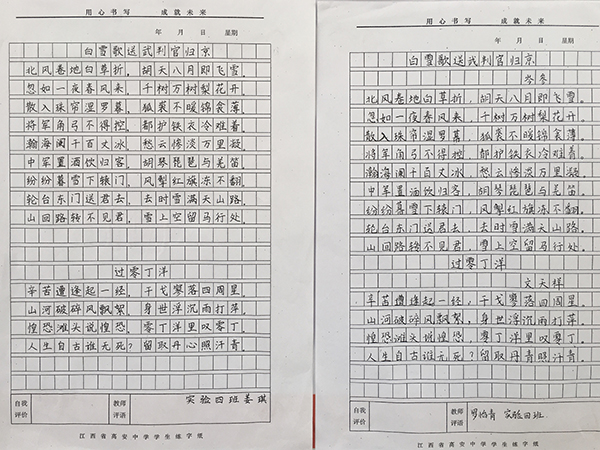 用心书写 成就未来
年 月 日 星期
白雪歌送武判官归京
北风卷地白草折，胡天八月即飞雪。
忽如一夜春风来，千树万树梨花开
散入珠帘湿罗幕，狐裘不暖锦衾薄
将军角弓不得控，都护铁衣冷难着
瀚海阑干百丈冰，愁云惨淡万里凝
中军置酒饮归客，胡琴琵琶与羌笛
纷纷暮雪下辕门，风掣红旗冻不翻
轮台东门送君去，去时雪满天山路
山回路转不见君，雪上空留马行处
过零丁洋
辛苦遭逢起一经，干戈寥落四周星
山河破碎风飘絮，身世浮沉雨打萍
惶恐滩头说惶恐，零丁洋里叹零丁
人生自古谁无死？留取丹心照汗青
自我评价
教师评语
实验四班姜琪
江西省高安中学学生练字纸
用心书写 成就未来
年 月 日 星期
白雪歌送武判官归京
岑参
北风卷地白草折，胡天八月即飞雪。
忽如一夜春风来，千树万树梨花开。
散入珠帘湿罗幕，狐裘不暖锦衾薄
将军角弓不得控，都护铁衣冷难着。
瀚海阑干百丈冰，愁云惨淡万里凝。
中军置酒饮归客，胡琴琵琶与羌笛。
纷纷暮雪下辕门，风掣红旗冻不翻。
轮台东门送君去，去时雪满天山路，
山回路转不见君，雪上空留马行处。
过零丁洋
文天祥
辛苦遭逢起一经，干戈寥落四周星。
山河破碎风飘絮，身世浮沉雨打萍。
惶恐滩头说惶恐，零丁洋里叹零丁。
人生自古谁无死？留取丹青照汗青。
自我评价
教师评语
罗怡青 实验四班
江西省高安中学学生练字纸